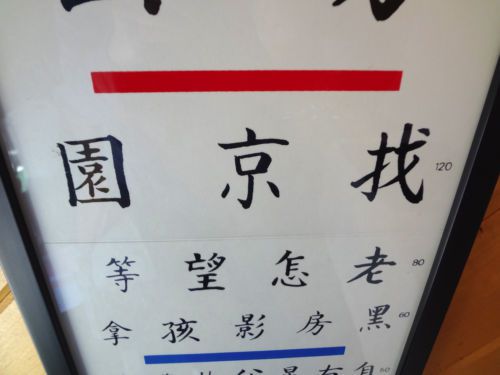 園 京 找 120
等 望 怎 老 80
拿 孩 影 房 黑 60